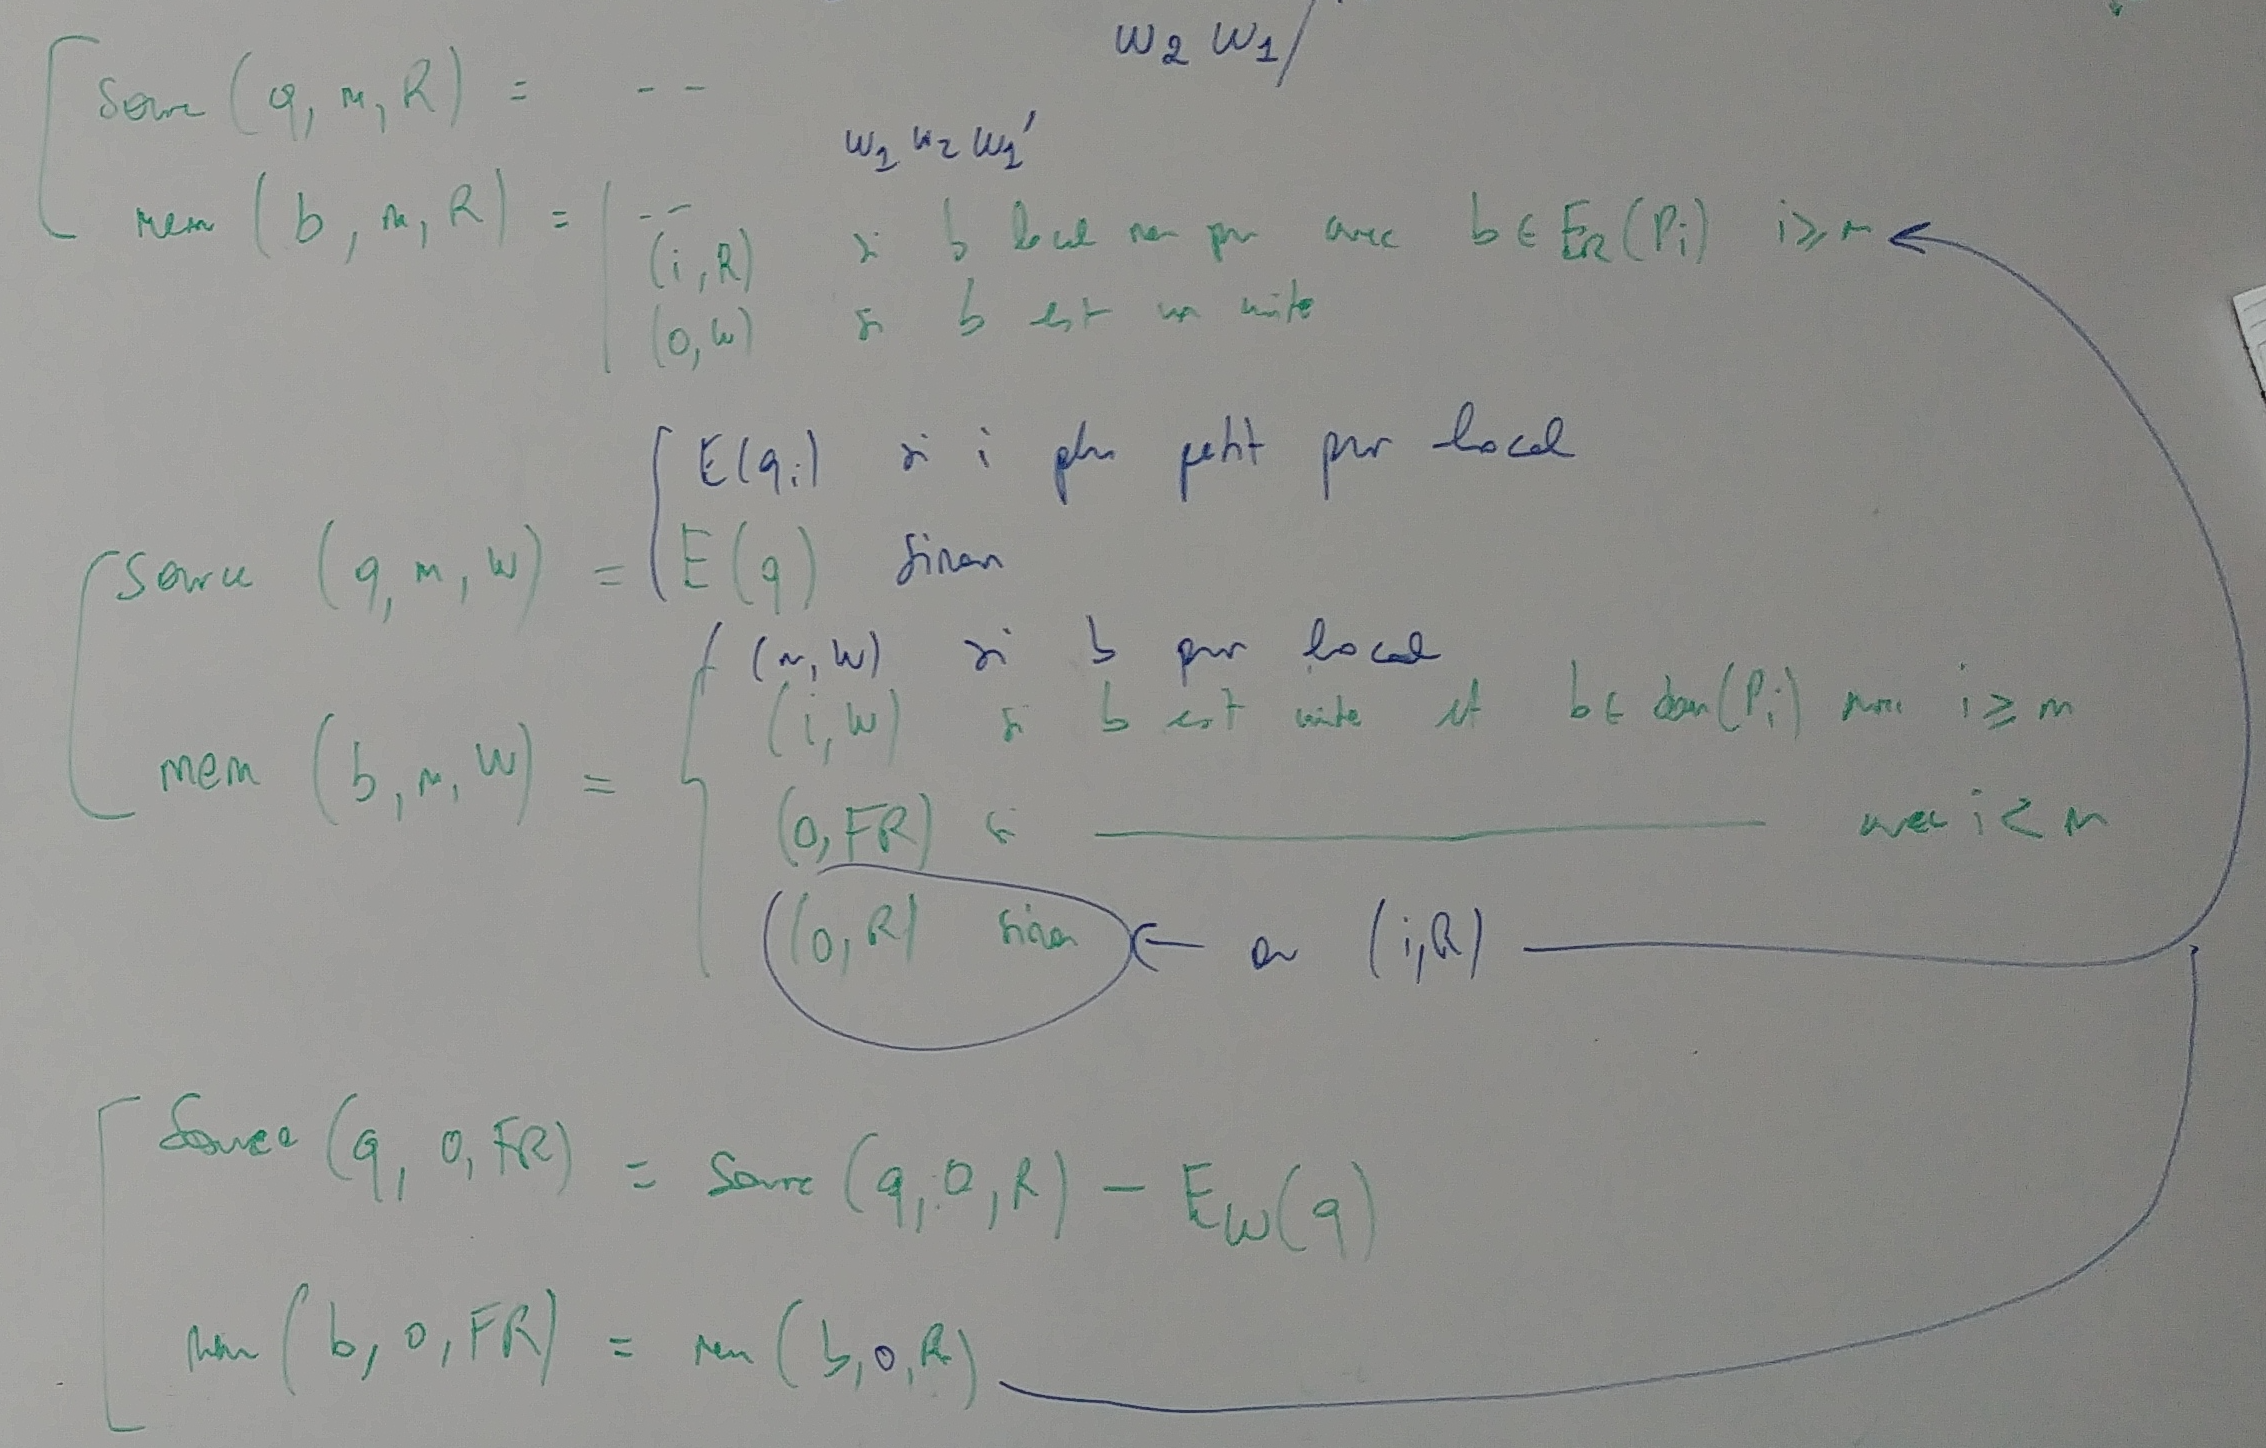 w2 w1/
Source (q, m, R) = --
w1 w2 w1'
mem (b, m, R) = | --
(i, R) si b local non pur avec b ∈ ER(Pi) i ≥ m
(0, W) si b est un write
E(qi) si i plus petit pur local
Source (q, m, W) = E(q) sinon
(m, W) si b pur local
(i, W) si b est write et b ∈ dom(Pi) i ≥ m
mem (b, m, W) =
(0, FR) si ———— avec i < m
(0, R) sinon ← ou (i, R)
Source (q, 0, FR) = Source (q, 0, R) − EW(q)
mem (b, 0, FR) = mem (b, 0, R)